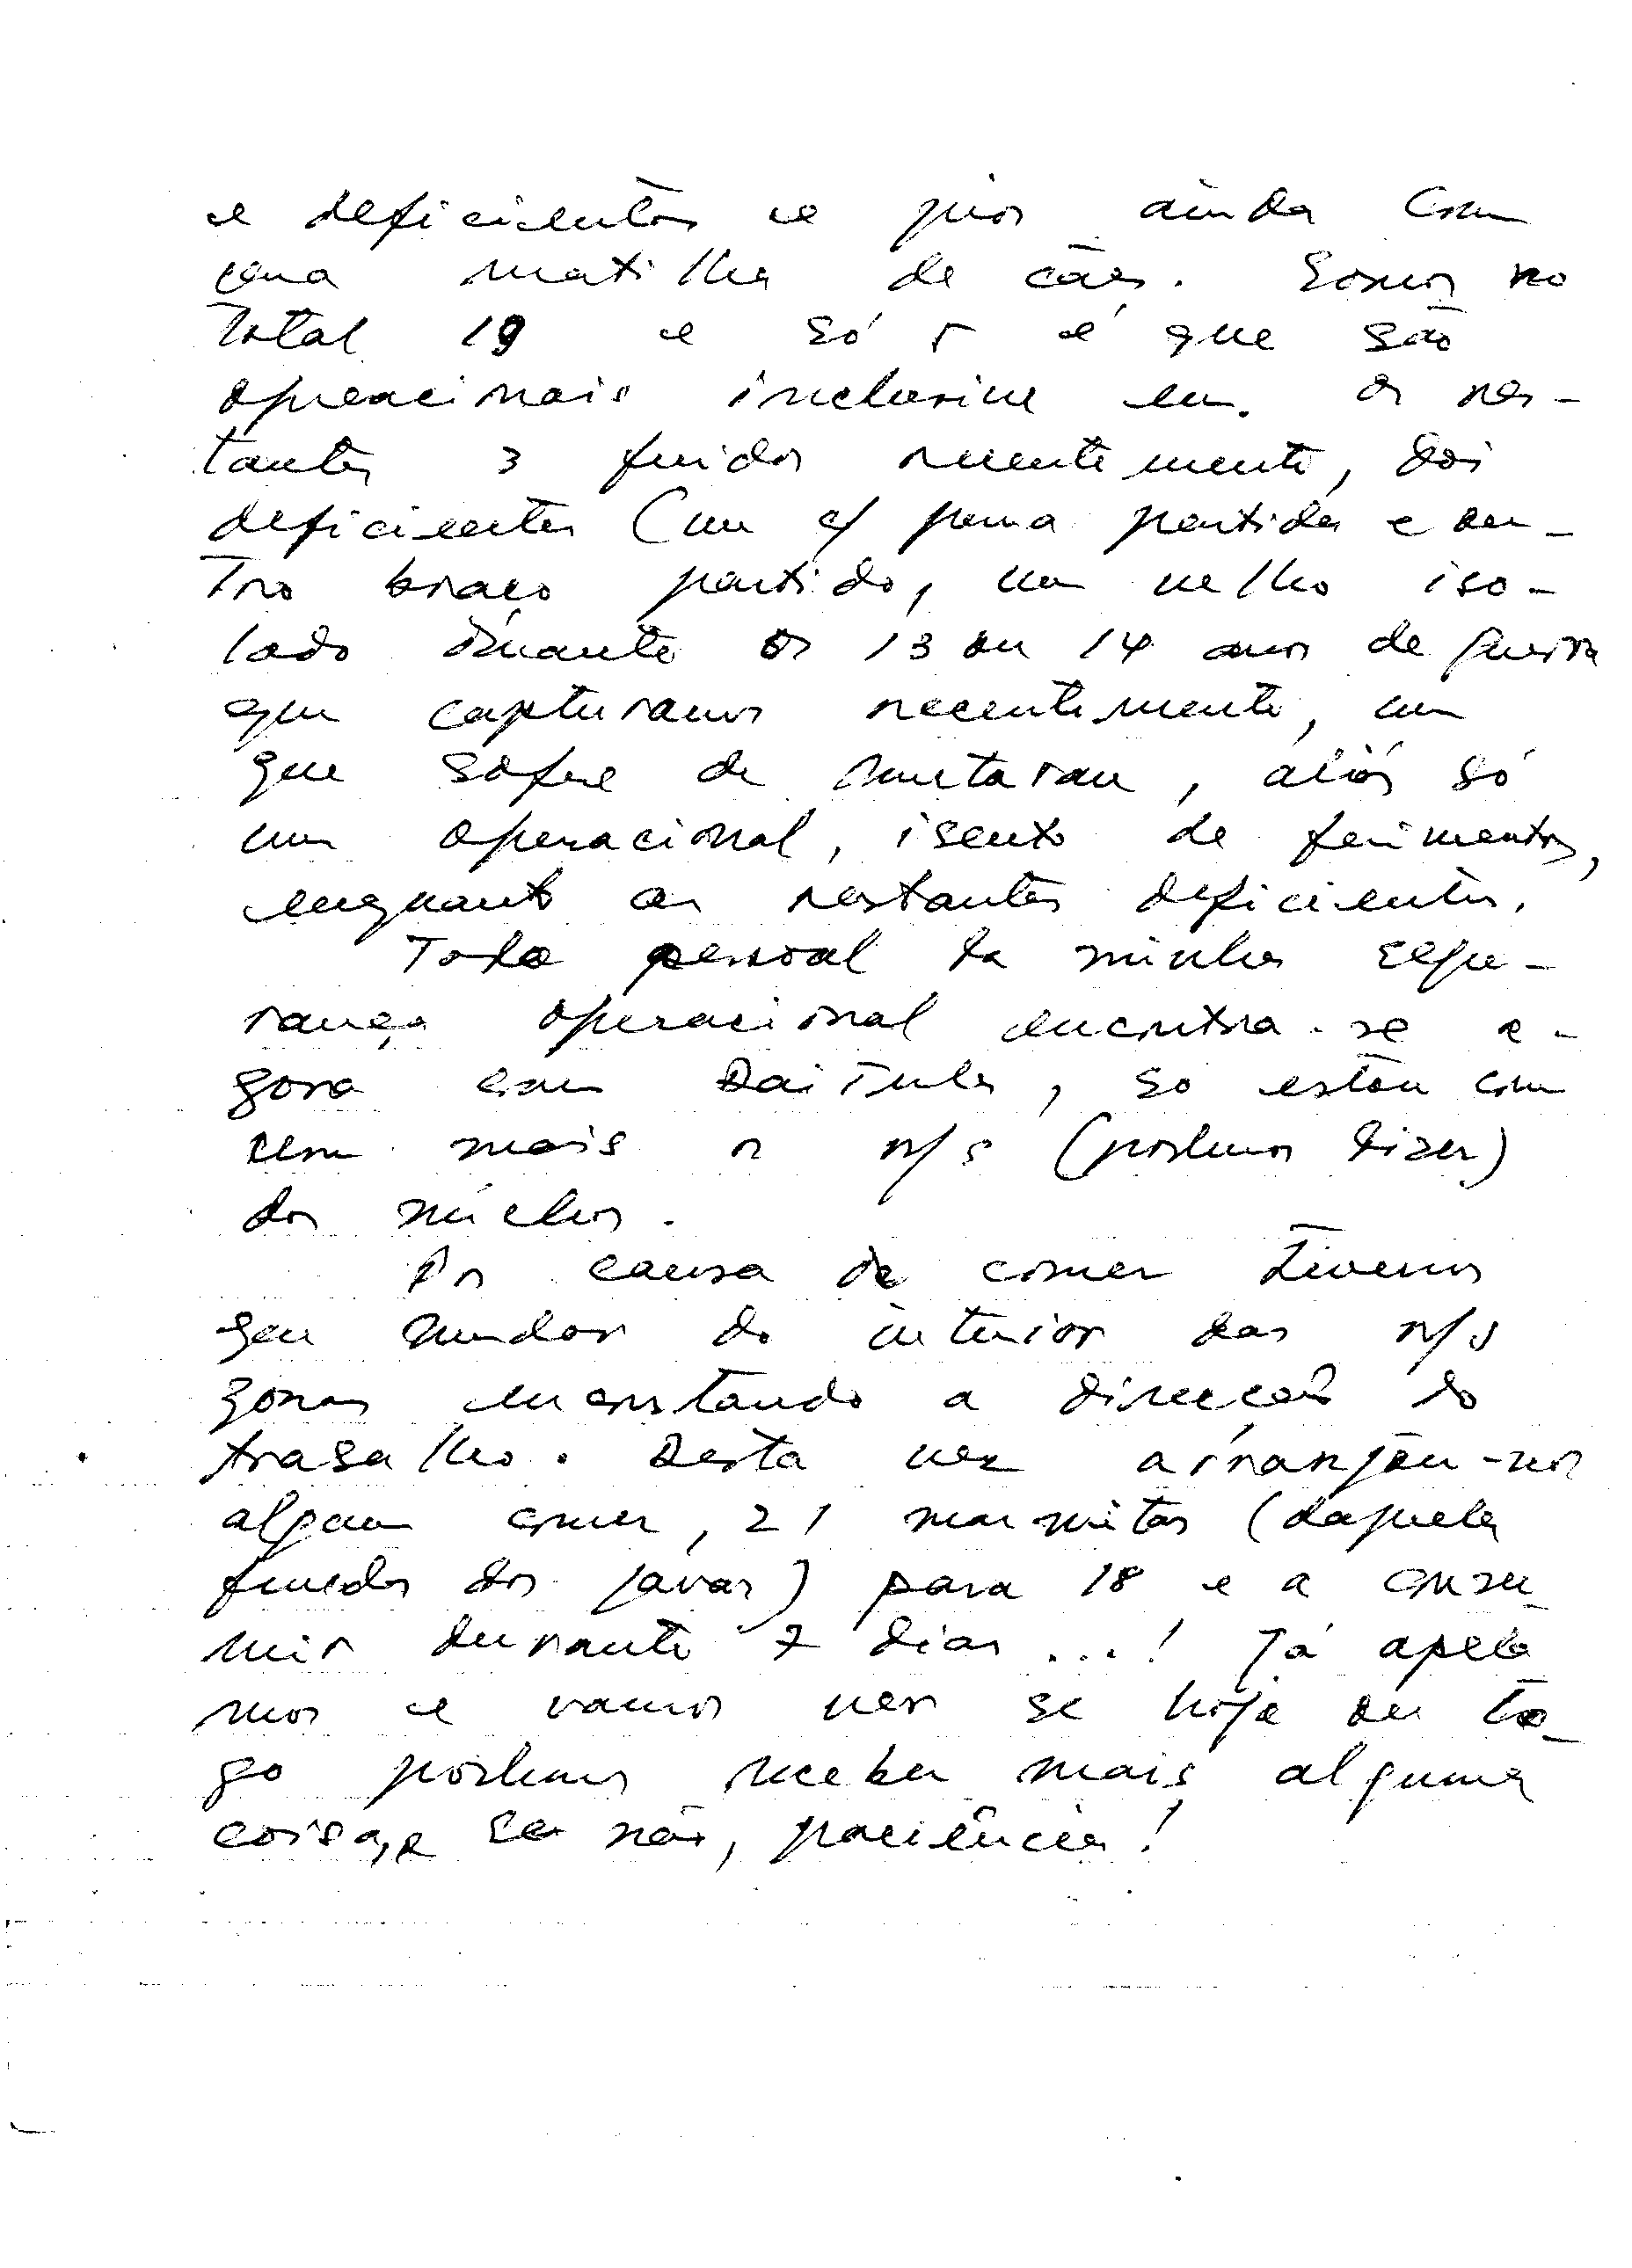 e deficientes e pior ainda com
uma matilha de cães. Somos no
total 19 e só 5 é que são
operacionais inclusive eu. Os res-
tantes 3 feridos recentemente, dois
deficientes (um c/ perna partida e ou-
tro braço partido, um velho iso-
lado durante os 13 ou 14 anos de guerra
que capturamos recentemente, um
que sofre de , aliás só
um operacional, isento de ferimentos,
enquanto os restantes deficientes.
Todo pessoal da minha segu-
rança operacional encontra-se a-
gora com Daitula, só estou com
um mais o n/s (podemos dizer)
dos núcleos.
Por causa de comer tivemos
que mudar do interior das n/s
zonas encostando a direcção do
trabalho. Desta vez arranjou-nos
algum comer, 21 marmitas (daquela
funeda dos javas) para 18 e a consu-
mir durante 7 dias ...! Já apela
mos e vamos ver se hoje ou lo-
go podemos receber mais alguma
coisa, e se não, paciência!